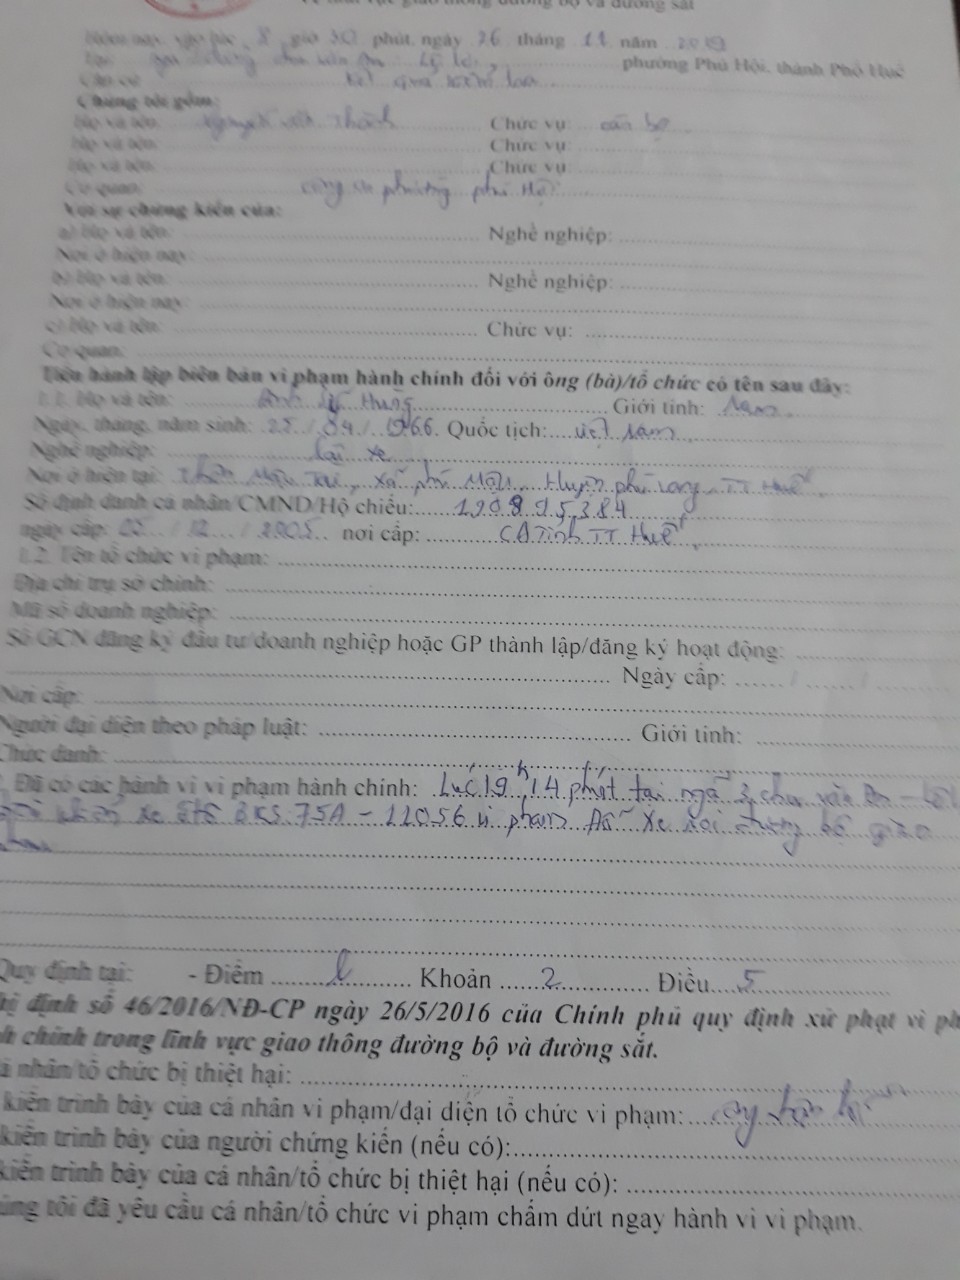 giao thông đường bộ và đường sắt
Hôm nay, vào lúc 8 giờ 30 phút, ngày 26 tháng 11 năm 2019
Tại phường Phú Hội, thành Phố Huế
Căn cứ
Chúng tôi gồm:
Họ và tên: Nguyễn Thành Chức vụ: cán bộ
Họ và tên: Chức vụ:
Họ và tên: Chức vụ:
Cơ quan: công an phường phú Hội
Với sự chứng kiến của:
a) Họ và tên: Nghề nghiệp:
Nơi ở hiện nay:
b) Họ và tên: Nghề nghiệp:
Nơi ở hiện nay:
c) Họ và tên: Chức vụ:
Cơ quan:
Tiến hành lập biên bản vi phạm hành chính đối với ông (bà)/tổ chức có tên sau đây:
1.1. Họ và tên: Hùng Giới tính: Nam
Ngày, tháng, năm sinh: / 04 / 1966. Quốc tịch: việt Nam
Nghề nghiệp: lái xe
Nơi ở hiện tại: Thôn Mậu Tài, xã phú Mậu, Huyện phú vang, TT Huế
Số định danh cá nhân/CMND/Hộ chiếu: 190895384
ngày cấp: / 12 / 2005 nơi cấp: CA Tỉnh TT Huế
1.2. Tên tổ chức vi phạm:
Địa chỉ trụ sở chính:
Mã số doanh nghiệp:
Số GCN đăng ký đầu tư/doanh nghiệp hoặc GP thành lập/đăng ký hoạt động:
Ngày cấp: / /
Nơi cấp:
Người đại diện theo pháp luật: Giới tính:
Chức danh:
Đã có các hành vi vi phạm hành chính: Lúc 19h 14 phút tại ngã 3 chu văn An -
xe ôtô BKS 75A - 11056 vi phạm Đỗ xe nơi đường bộ giao
nhau
Quy định tại: - Điểm l Khoản 2 Điều 5
hị định số 46/2016/NĐ-CP ngày 26/5/2016 của Chính phủ quy định xử phạt vi ph
h chính trong lĩnh vực giao thông đường bộ và đường sắt.
nhân/tổ chức bị thiệt hại:
kiến trình bày của cá nhân vi phạm/đại diện tổ chức vi phạm:
kiến trình bày của người chứng kiến (nếu có):
kiến trình bày của cá nhân/tổ chức bị thiệt hại (nếu có):
úng tôi đã yêu cầu cá nhân/tổ chức vi phạm chấm dứt ngay hành vi vi phạm.